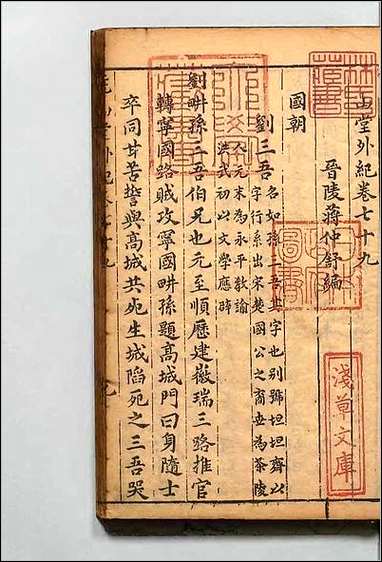 山堂外紀卷七十九
晉陵蔣仲舒編
國朝
劉三吾
名如孫三吾其字也別號坦坦齋以
字行系出宋楚國公之裔世為茶陵
人元末為永平教諭
洪武初以文學應時
劉畊孫三吾伯兄也元至順歷建徽瑞三路推官
轉寧國路賊攻寧國畊孫題髙城門曰身隨士
卒同甘苦誓與髙城共死生城陷死之三吾哭
淺草文庫
林氏
藏書
圖書